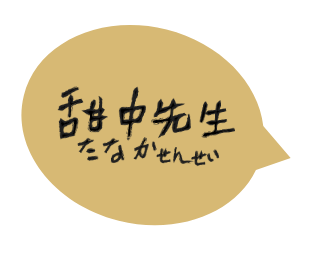 甜中先生
たなかせんせい